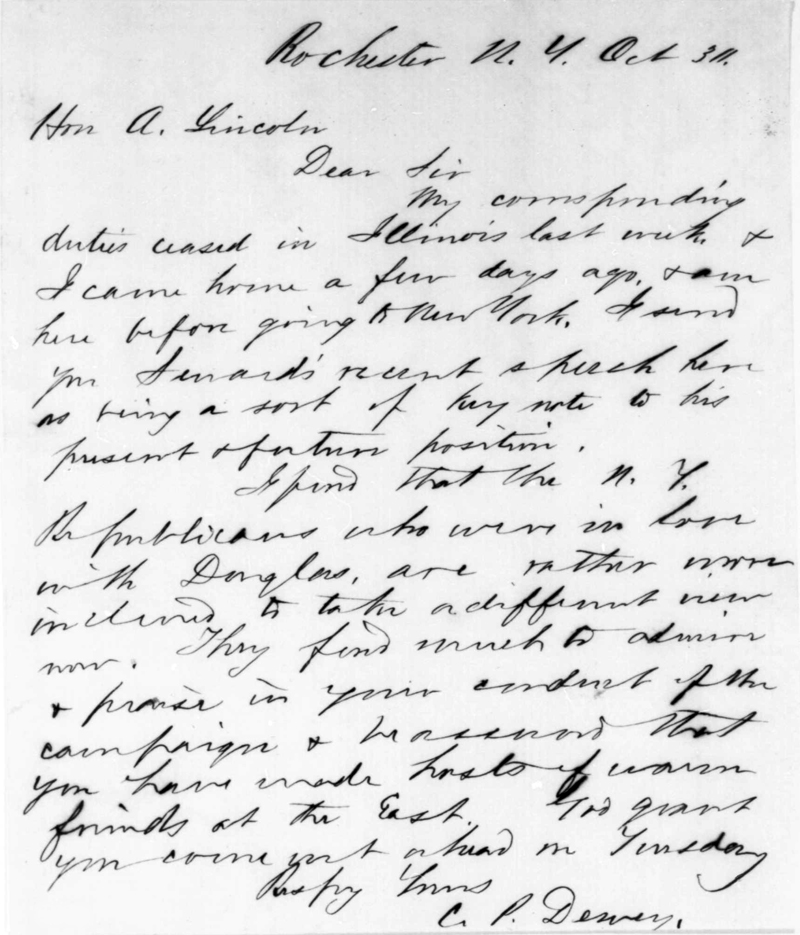 Rochester N. Y. Oct 30.
Hon A. Lincoln
Dear Sir
My corresponding
duties ceased in Illinois last week, &
I came home a few days ago, & am
here before going to New York. I send
you Seward's recent speech here
as being a sort of key note to his
present & future position.
I find that the N. Y.
Republicans who were in love
with Douglas, are rather more
inclined to take a different view
now. They find much to admire
& praise in your conduct of the
campaign & be assured that
you have made hosts of warm
friends at the East. God grant
you come out ahead on Tuesday
Respy Yours
C. P. Dewey.